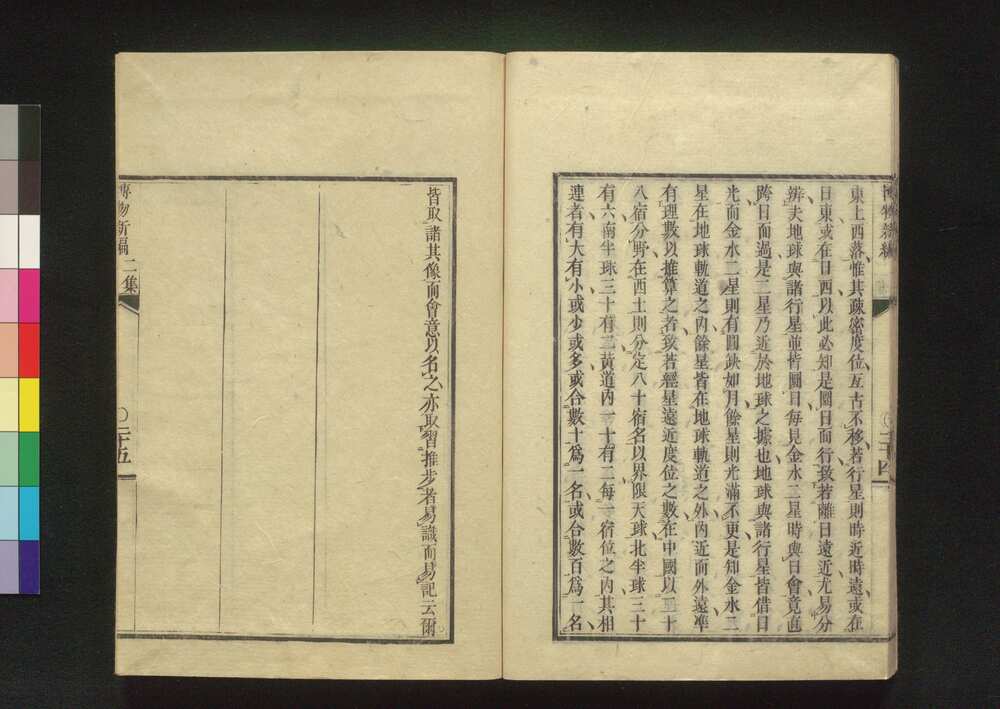 博物新編
二十四
東上西落惟其疎密度位亙古不移若行星則時近時遠或在
日東或在日西以此必知是圜日而行致若離日遠近尤易分
辨夫地球與諸行星並皆圜日每見金水二星時與日會竟直
跨日面過是二星乃近於地球之據也地球與諸行星皆借日
光而金水二星則有圓缺如月餘星則光滿不更是知金水二
星在地球軌道之內餘星皆在地球軌道之外內近而外遠準
有理數以推算之者致若經星遠近度位之數在中國以二十
八宿分野在西土則分定八十宿名以界限天球北半球三十
有六南半球三十有二黃道內一十有二每一宿位之內其相
連者有大有小或少或多或合數十爲一名或合數百爲一名
皆取諸其像而會意以名之亦取習推步者易識而易記云爾
博物新編 二集
二十五